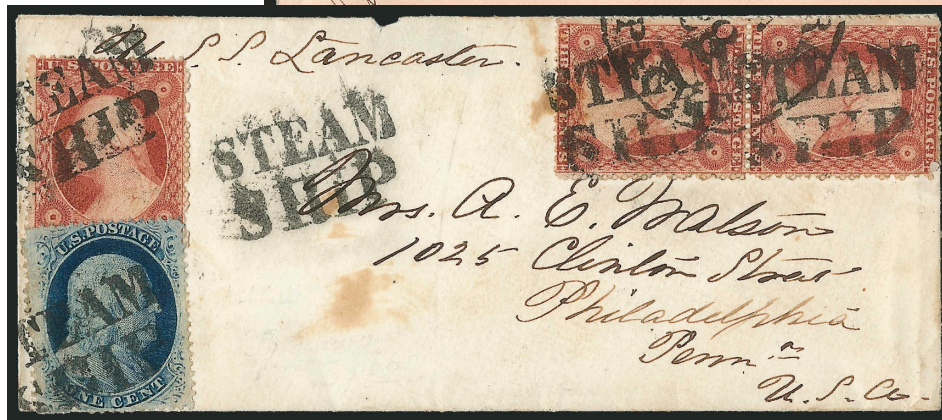 U. S. S. Lancaster.
STEAM
SHIP
STEAM
SHIP
STEAM
SHIP
STEAM
SHIP
U.S. POSTAGE
U.S. POSTAGE
ONE CENT
STEAM
SHIP
Mrs. A. E. Watson
1025 Clinton Street
Philadelphia
Penn.a
U. S. A.